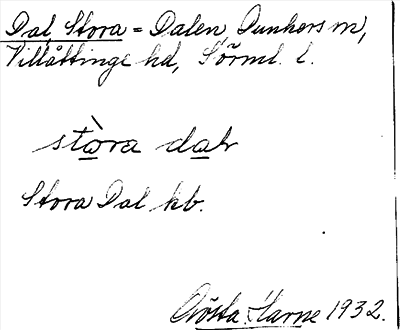 Dal, Stora = Dalen, Dunkers sn,
Villåttinge hd, Sörml. l.
stòra dal
Stora Dal kb.
Gösta Harne 1932.